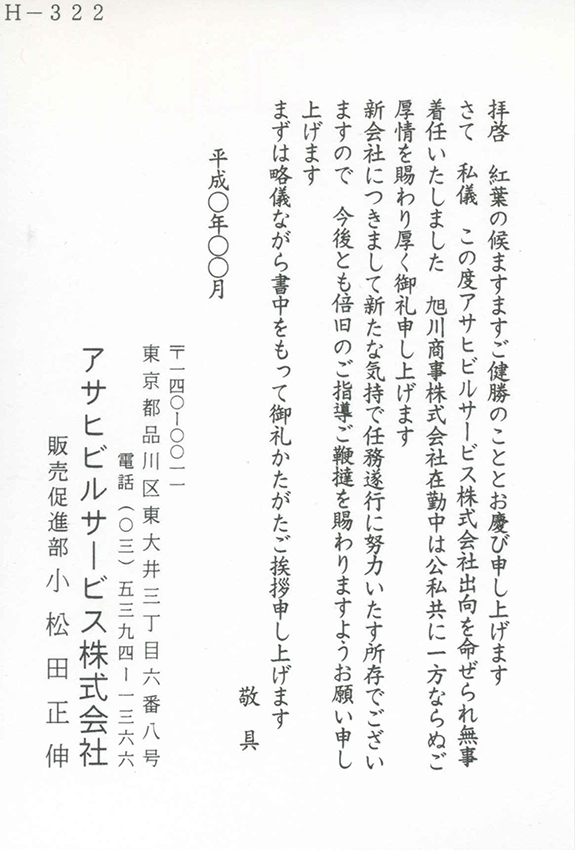 H－322
拝啓　紅葉の候ますますご健勝のこととお慶び申し上げます
さて　私儀　この度アサヒビルサービス株式会社出向を命ぜられ無事
着任いたしました　旭川商事株式会社在勤中は公私共に一方ならぬご
厚情を賜わり厚く御礼申し上げます
新会社につきまして新たな気持で任務遂行に努力いたす所存でござい
ますので　今後とも倍旧のご指導ご鞭撻を賜わりますようお願い申し
上げます
まずは略儀ながら書中をもって御礼かたがたご挨拶申し上げます
敬具
平成〇年〇〇月
〒一四〇―〇〇一一
東京都品川区東大井三丁目六番八号
電話（〇三）五三九四―一三六六
アサヒビルサービス株式会社
販売促進部　小松田正伸